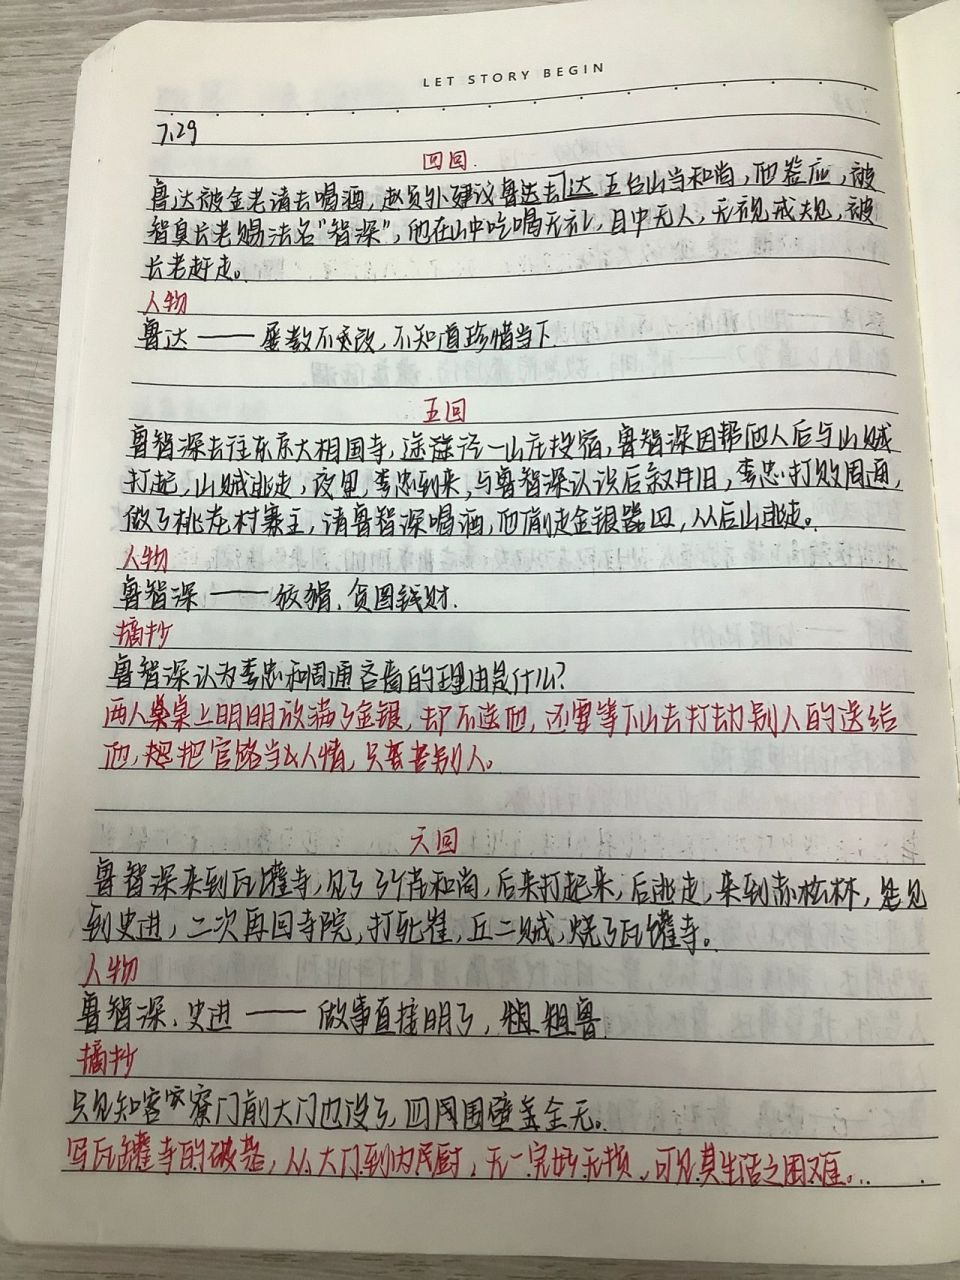 LET STORY BEGIN
7.29
四回
鲁达被金老请去喝酒,赵员外建议鲁达去达五台山当和尚,他答应,被
智真长老赐法名“智深”,他在山中吃喝无礼,目中无人,无视戒规,被
长老赶走。
人物
鲁达——屡教不改,不知道珍惜当下
五回
鲁智深去往东京大相国寺,途径一山庄投宿,鲁智深因帮他人后与山贼
打起,山贼逃走,夜里,李忠到来,与鲁智深认识后叙旧,李忠打败周通,
做了桃花村寨主,请鲁智深喝酒,他偷走金银器皿,从后山逃走。
人物
鲁智深——狡猾,贪图钱财.
摘抄
鲁智深认为李忠和周通吝啬的理由是什么?
两人桌上明明放满了金银,却不送他,还要等下山去打劫别人的送给
他,把官路当人情,只要苦别人。
六回
鲁智深来到瓦罐寺,见了几个老和尚,后来打起来,后逃走,来到赤松林,见
到史进,二次再回寺院,打死崔,丘二贼,烧了瓦罐寺。
人物
鲁智深,史进——做事直接明了,粗鲁
摘抄
只见知客寮门前大门也没了,四围壁落全无。
写瓦罐寺的破落,从大门到内厨,无一完好无损,可见其生活之困难。